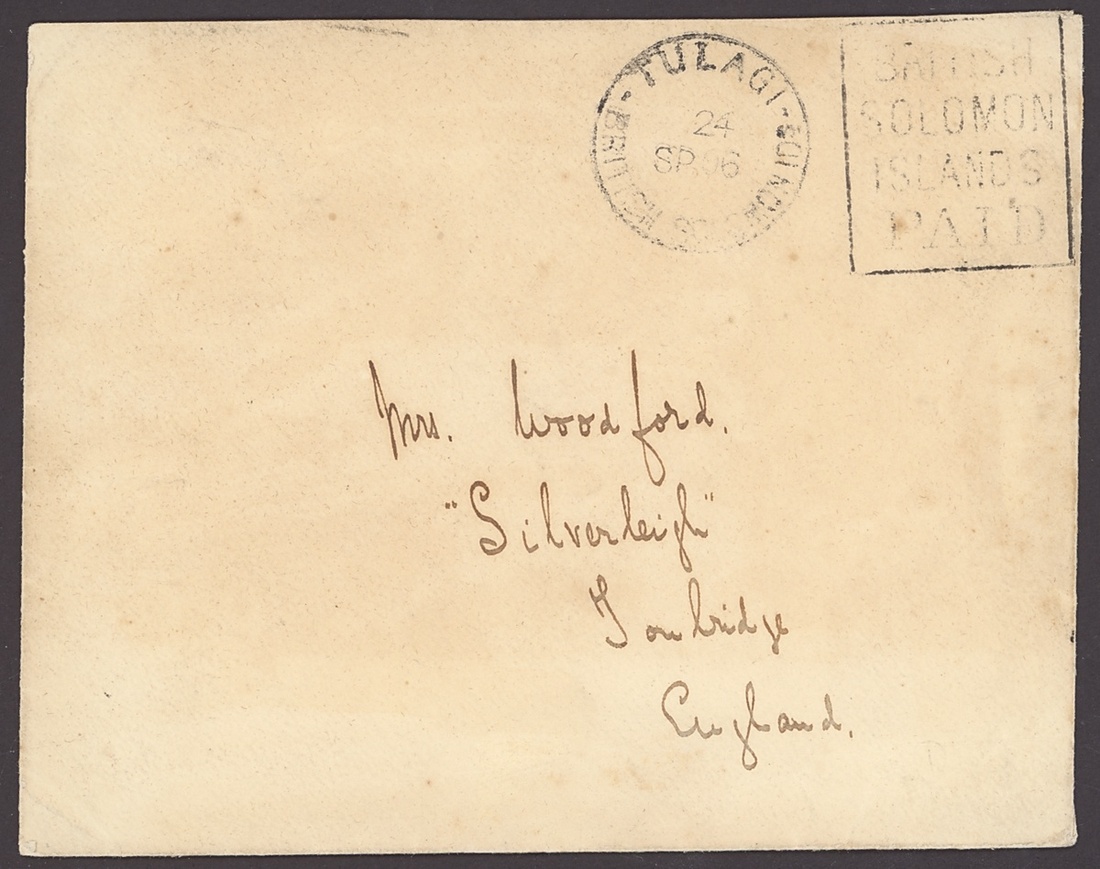 TULAGI
BRITISH SOLOMON IDS
24
SP.06
BRITISH
SOLOMON
ISLANDS
PAID
Mrs. Woodford.
"Silverleigh"
Tonbridge
England.